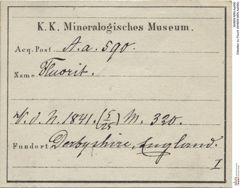 K. K. Mineralogisches Museum.
Acq. Post. A. a. 590.
Name Fluorit.
V. d. N. 1841. (5/25) M. 320.
Fundort Derbyshire, England.
I